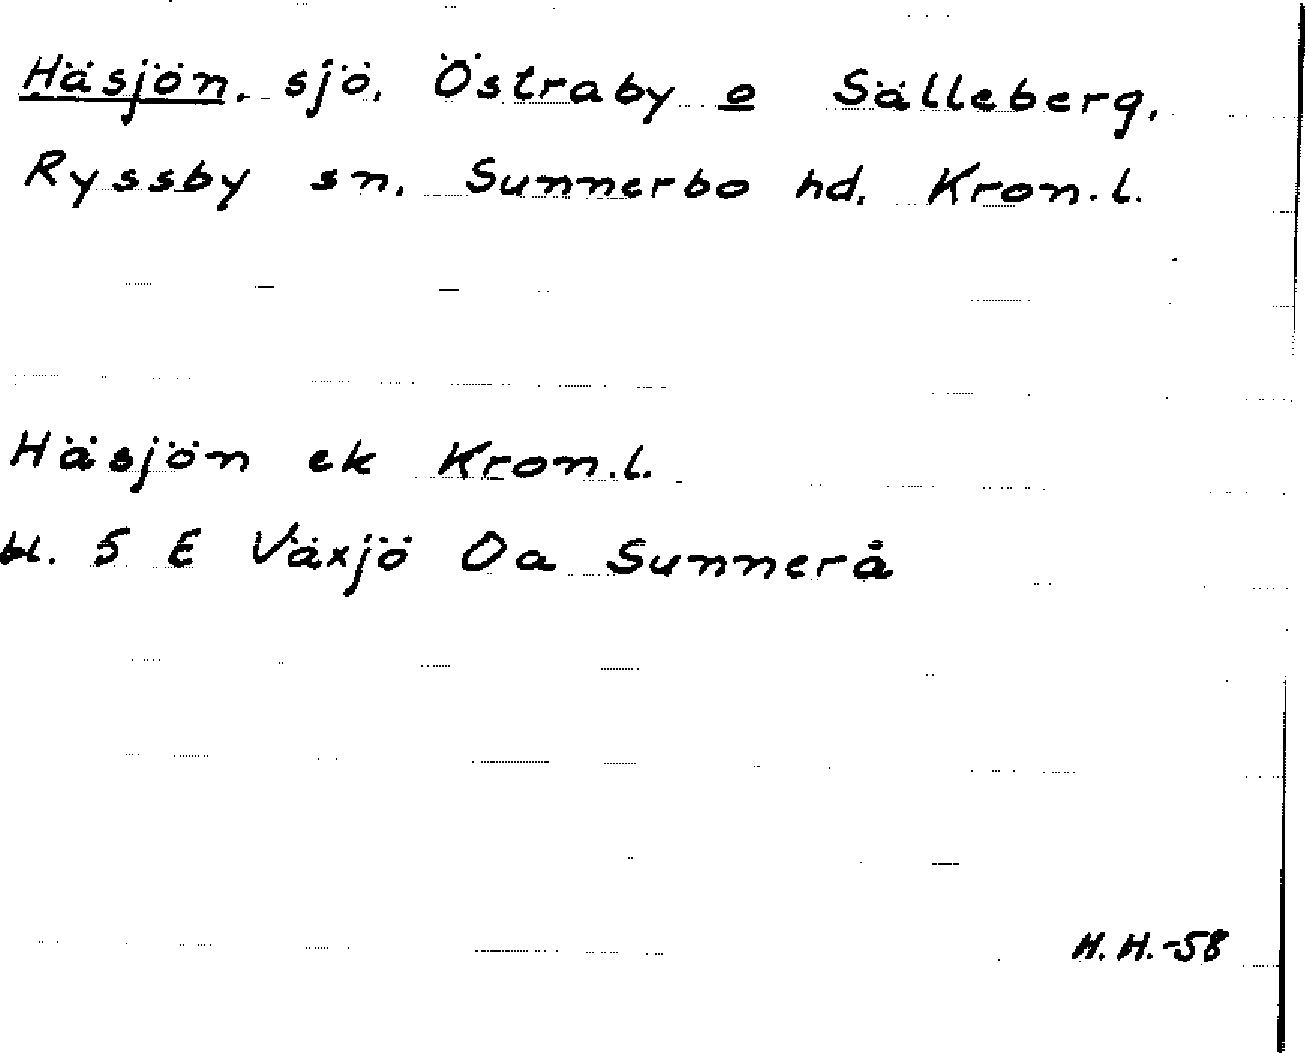 Häsjön. sjö. Östraby o Sälleberg.
Ryssby sn. Sunnerbo hd. Kron.l.
Häsjön ek Kron.l.
bl. 5 E Växjö Oa Sunnerå
H.H.-58